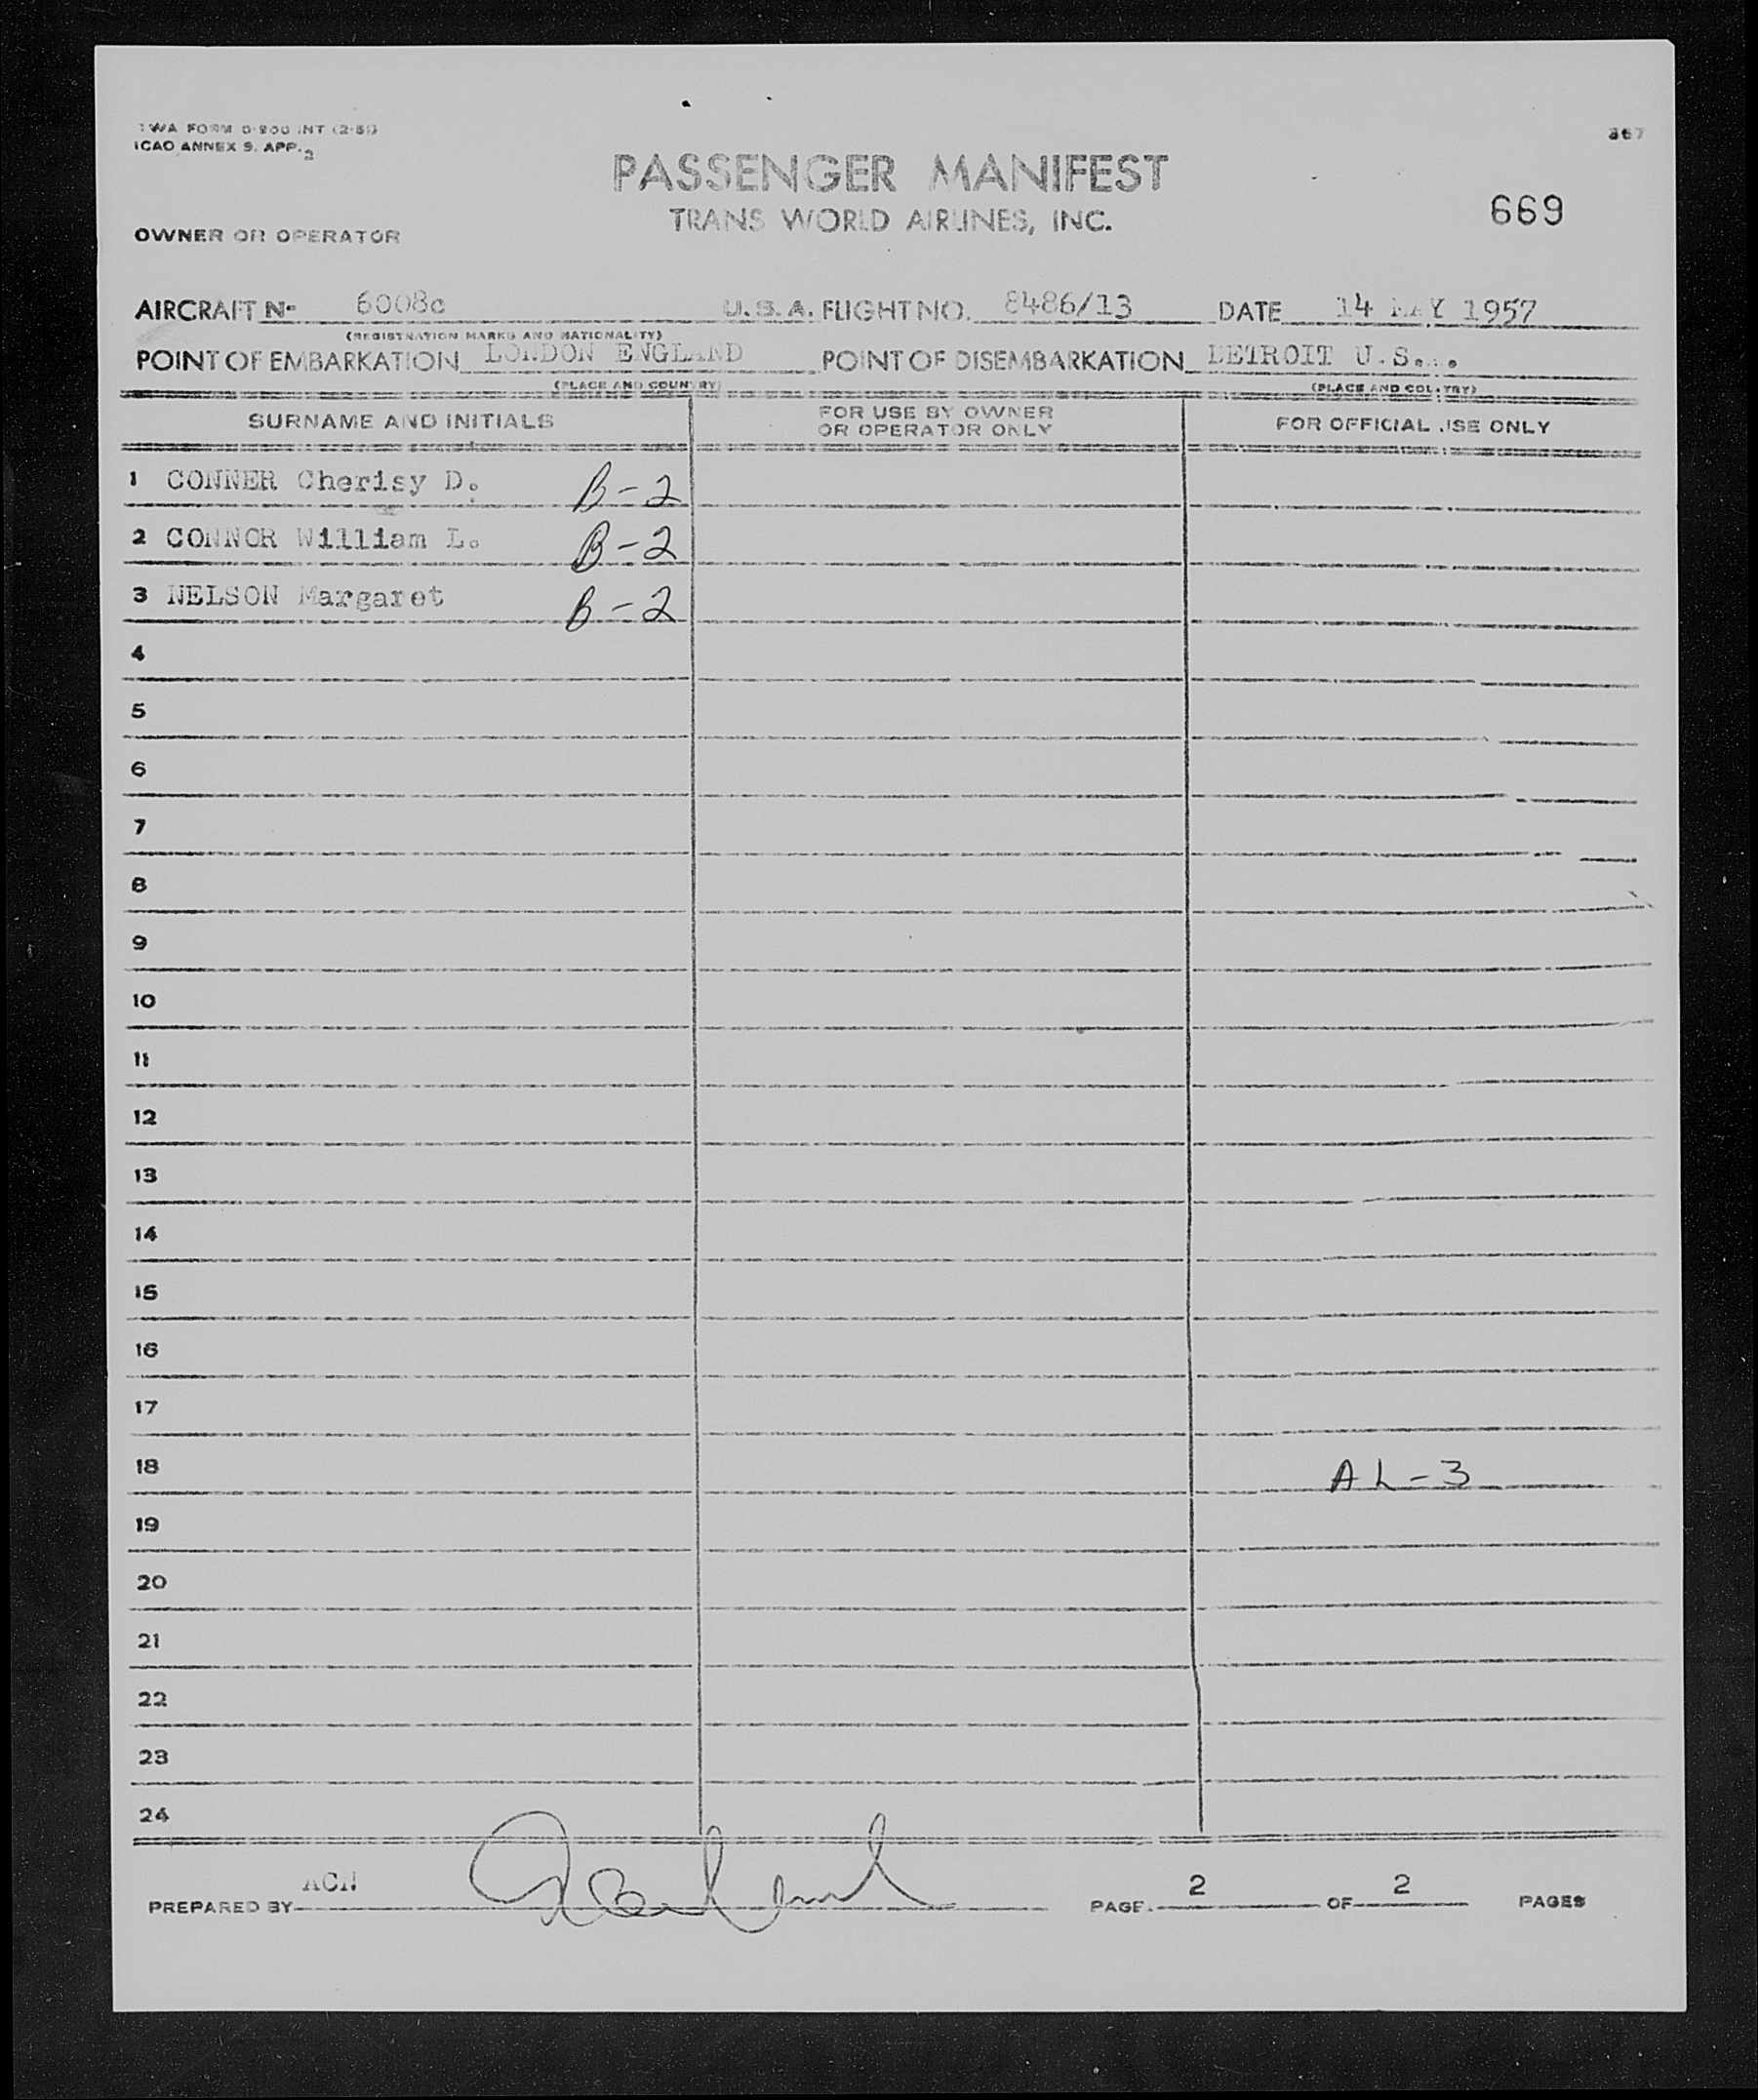 TWA FORM O-900 INT (2-51)
ICAO ANNEX 9. APP. 2
367
PASSENGER MANIFEST
TRANS WORLD AIRLINES, INC.
669
OWNER OR OPERATOR
AIRCRAFT No 6008c U.S.A. FLIGHT NO. 8486/13 DATE 14 MAY 1957
(REGISTRATION MARKS AND NATIONALITY)
POINT OF EMBARKATION LONDON ENGLAND POINT OF DISEMBARKATION DETROIT U.S.
(PLACE AND COUNTRY) (PLACE AND COUNTRY)
SURNAME AND INITIALS FOR USE BY OWNER OR OPERATOR ONLY FOR OFFICIAL USE ONLY
1 CONNER Cherisy D. B-2
2 CONNOR William L. B-2
3 NELSON Margaret B-2
4
5
6
7
8
9
10
11
12
13
14
15
16
17
18 AL-3
19
20
21
22
23
24
PREPARED BY ACN PAGE 2 OF 2 PAGES